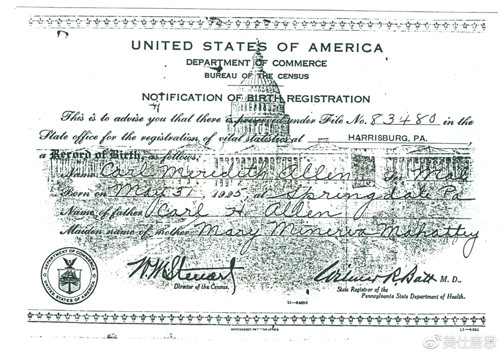 UNITED STATES OF AMERICA
DEPARTMENT OF COMMERCE
BUREAU OF THE CENSUS
NOTIFICATION OF BIRTH REGISTRATION
This is to advise you that there is preserved under File No. 83480 in the
State office for the registration of vital statistics at HARRISBURG, PA.
a Record of Birth, as follows:
Name Carl Meredith Allen
Born on May 31 1925 at Springdale Pa
Name of father Carl H Allen
Maiden name of mother Mary Minerva
DEPARTMENT OF COMMERCE
UNITED STATES OF AMERICA
W M Steuart
Director of the Census.
M. D.,
State Registrar of the
Pennsylvania State Department of Health.
美仕唐恩